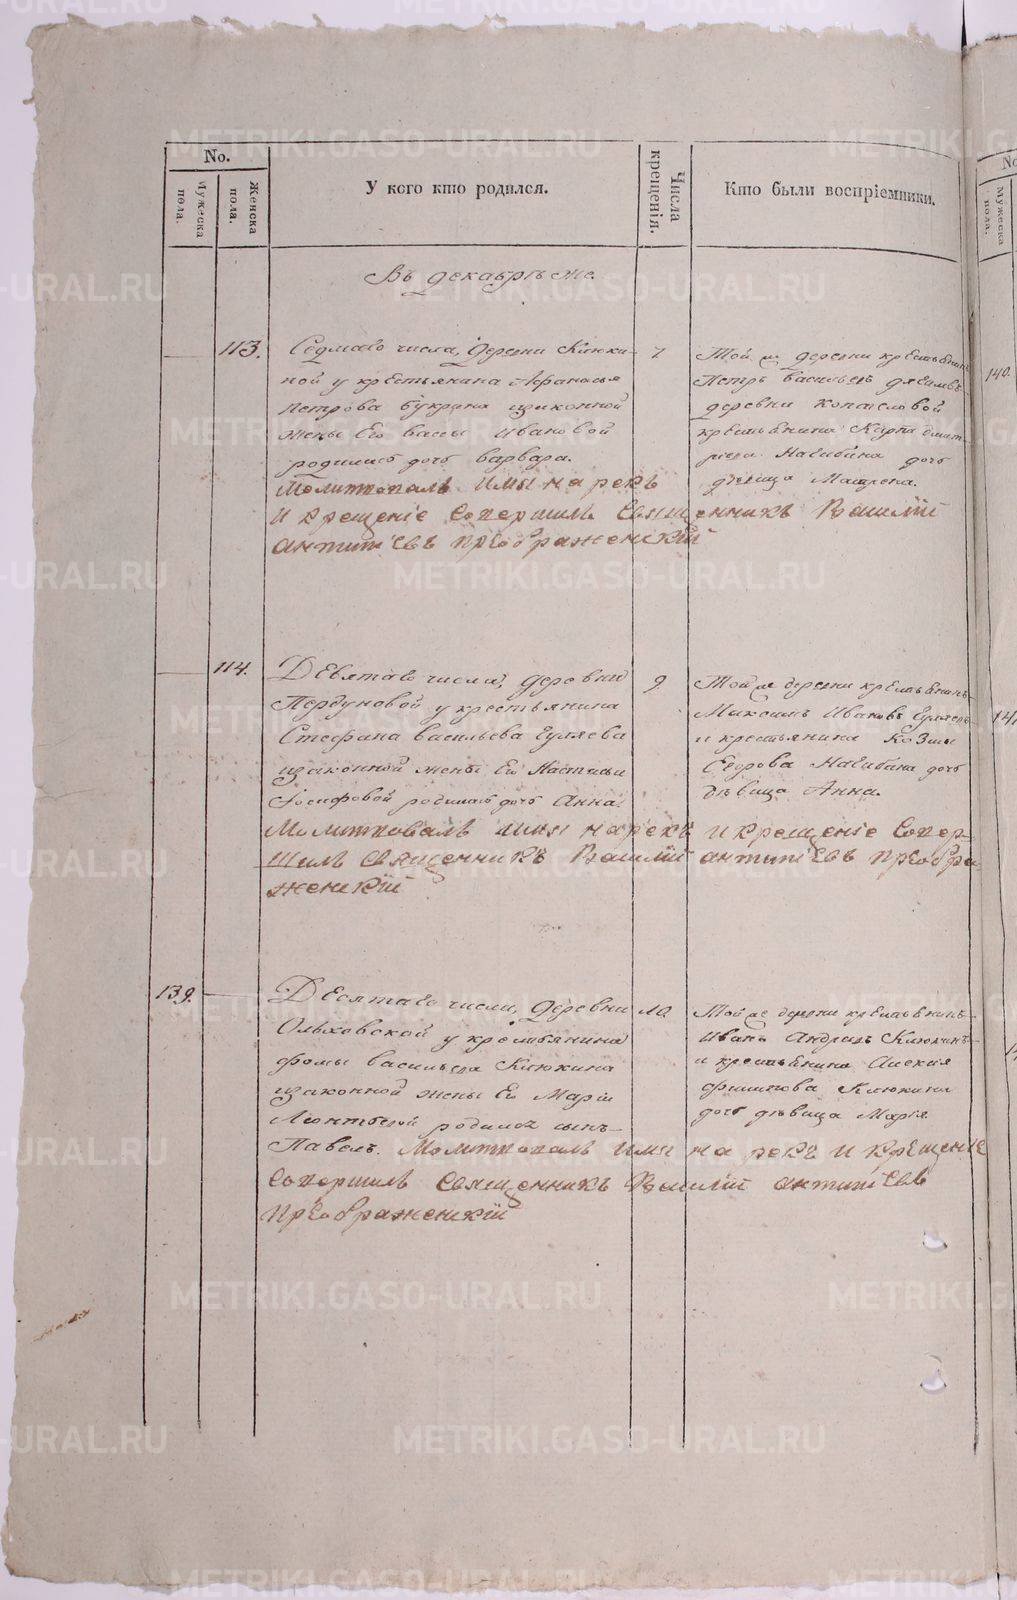 No.
Мужеска пола.
Женска пола.
У кого кто родился.
Числа крещенія.
Кто были воспріемники.
Въ декабрѣ же.
113.
Седмаго числа, деревни Клюки-
ной у крестьянина Афанасья
Петрова Букрина изаконной
жены Его Вассы Ивановой
родилась дочь Варвара.
Молитвовалъ имя нарекъ
и крещеніе совершилъ Священникъ Василій
Антипіевъ Преображенскій
7
Той же деревни крестьянинъ
Петръ Васильевъ
деревни
крестьянина Карпа Дмит-
ріева Насибина дочь
дѣвица Матрена.
114.
Девятаго числа, деревни
Пердуновой у крестьянина
Стефана Васильева Гуляева
изаконной жены Его Настасьи
Іосифовой родилась дочь Анна.
Молитвовалъ имя нарекъ и крещеніе Совер-
шилъ Священникъ Василій Антипіевъ Преобра-
женскій
9
Той же деревни крестьянинъ
Максимъ Ивановъ Гуляевъ
и крестьянина Козмы
Федорова Насибина дочь
дѣвица Анна.
139.
Десятаго числа, деревни
Ольховской у крестьянина
Фомы Васильева Клюкина
изаконной жены Его Маріи
Леонтьевой родился сынъ
Павелъ. Молитвовалъ имя нарекъ и крещеніе
Совершилъ Священникъ Василій Антипіевъ
Преображенскій
10.
Той же деревни крестьянинъ
Иванъ Андреевъ Клюкинъ
и крестьянина Алексія
Филиппова Клюкина
дочь дѣвица Марія
140.
METRIKI.GASO-URAL.RU